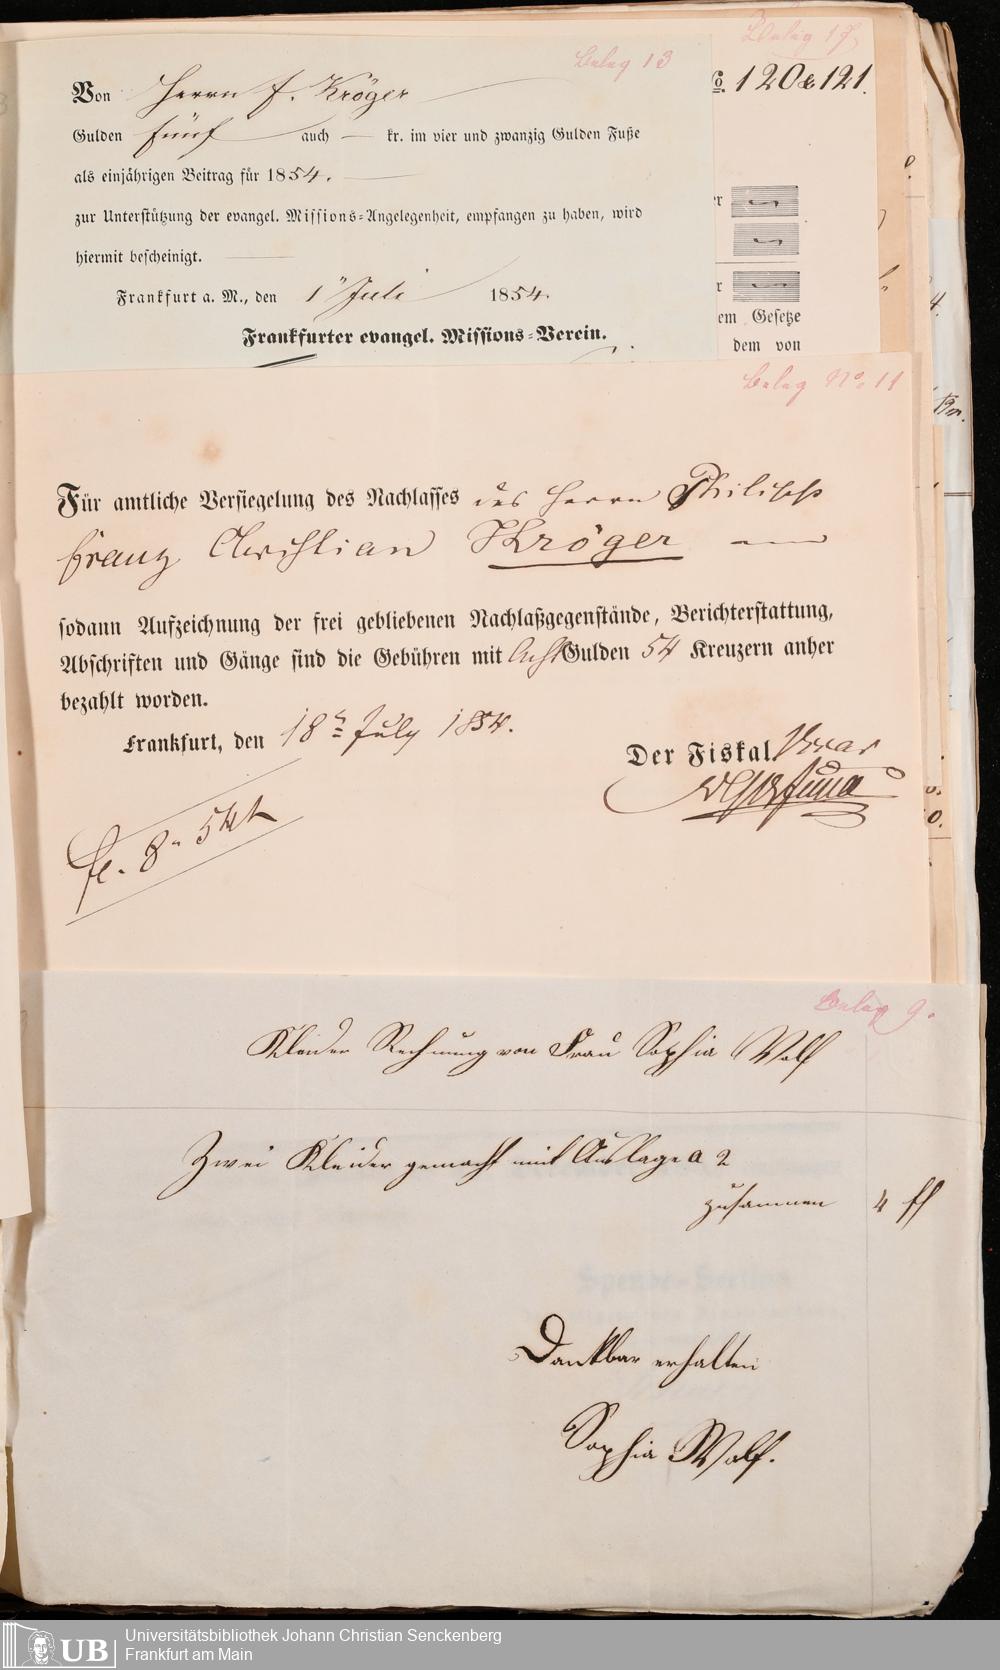 Beleg 13
Von Herrn F. Kröger
Gulden fünf auch — kr. im vier und zwanzig Gulden Fuße
als einjährigen Beitrag für 1854.
zur Unterstützung der evangel. Missions-Angelegenheit, empfangen zu haben, wird
hiermit bescheinigt.
Frankfurt a. M., den 1 Juli 1854.
Frankfurter evangel. Missions-Verein.
Beleg 17
No. 120 & 121.
em Gesetze
dem von
Beleg No. 11
Für amtliche Versiegelung des Nachlasses des Herrn Philipp
Franz Christian Kröger
sodann Aufzeichnung der frei gebliebenen Nachlaßgegenstände, Berichterstattung,
Abschriften und Gänge sind die Gebühren mit Acht Gulden 54 Kreuzern anher
bezahlt worden.
Frankfurt, den 18 July 1854.
Der Fiskal
fl. 8 " 54 k
Beleg 9.
Kleider Rechnung von Frau Sophia Wolf
Zwei Kleider gemacht mit Auslage a 2
zusammen 4 fl
Dankbar erhalten
Sophia Wolf.
UB Universitätsbibliothek Johann Christian Senckenberg
Frankfurt am Main